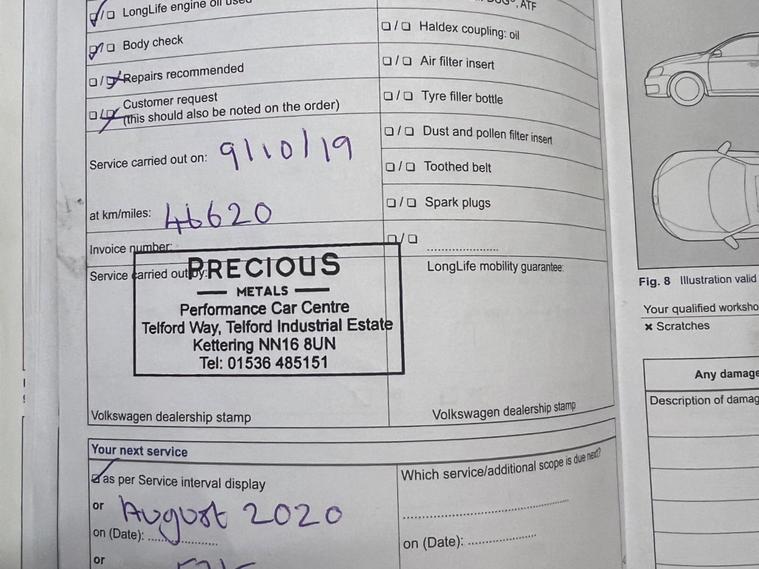 LongLife engine oil used
, ATF
Body check
Repairs recommended
Customer request
(this should also be noted on the order)
Service carried out on: 9/10/19
at km/miles: 46620
Invoice number:
Service carried out by:
PRECIOUS
METALS
Performance Car Centre
Telford Way, Telford Industrial Estate
Kettering NN16 8UN
Tel: 01536 485151
Volkswagen dealership stamp
Haldex coupling: oil
Air filter insert
Tyre filler bottle
Dust and pollen filter insert
Toothed belt
Spark plugs
LongLife mobility guarantee:
Volkswagen dealership stamp
Your next service
as per Service interval display
or August 2020
on (Date):
or
Which service/additional scope is due next?
on (Date):
Fig. 8 Illustration valid
Your qualified worksho
× Scratches
Any damage
Description of damag